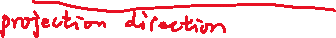 projection direction